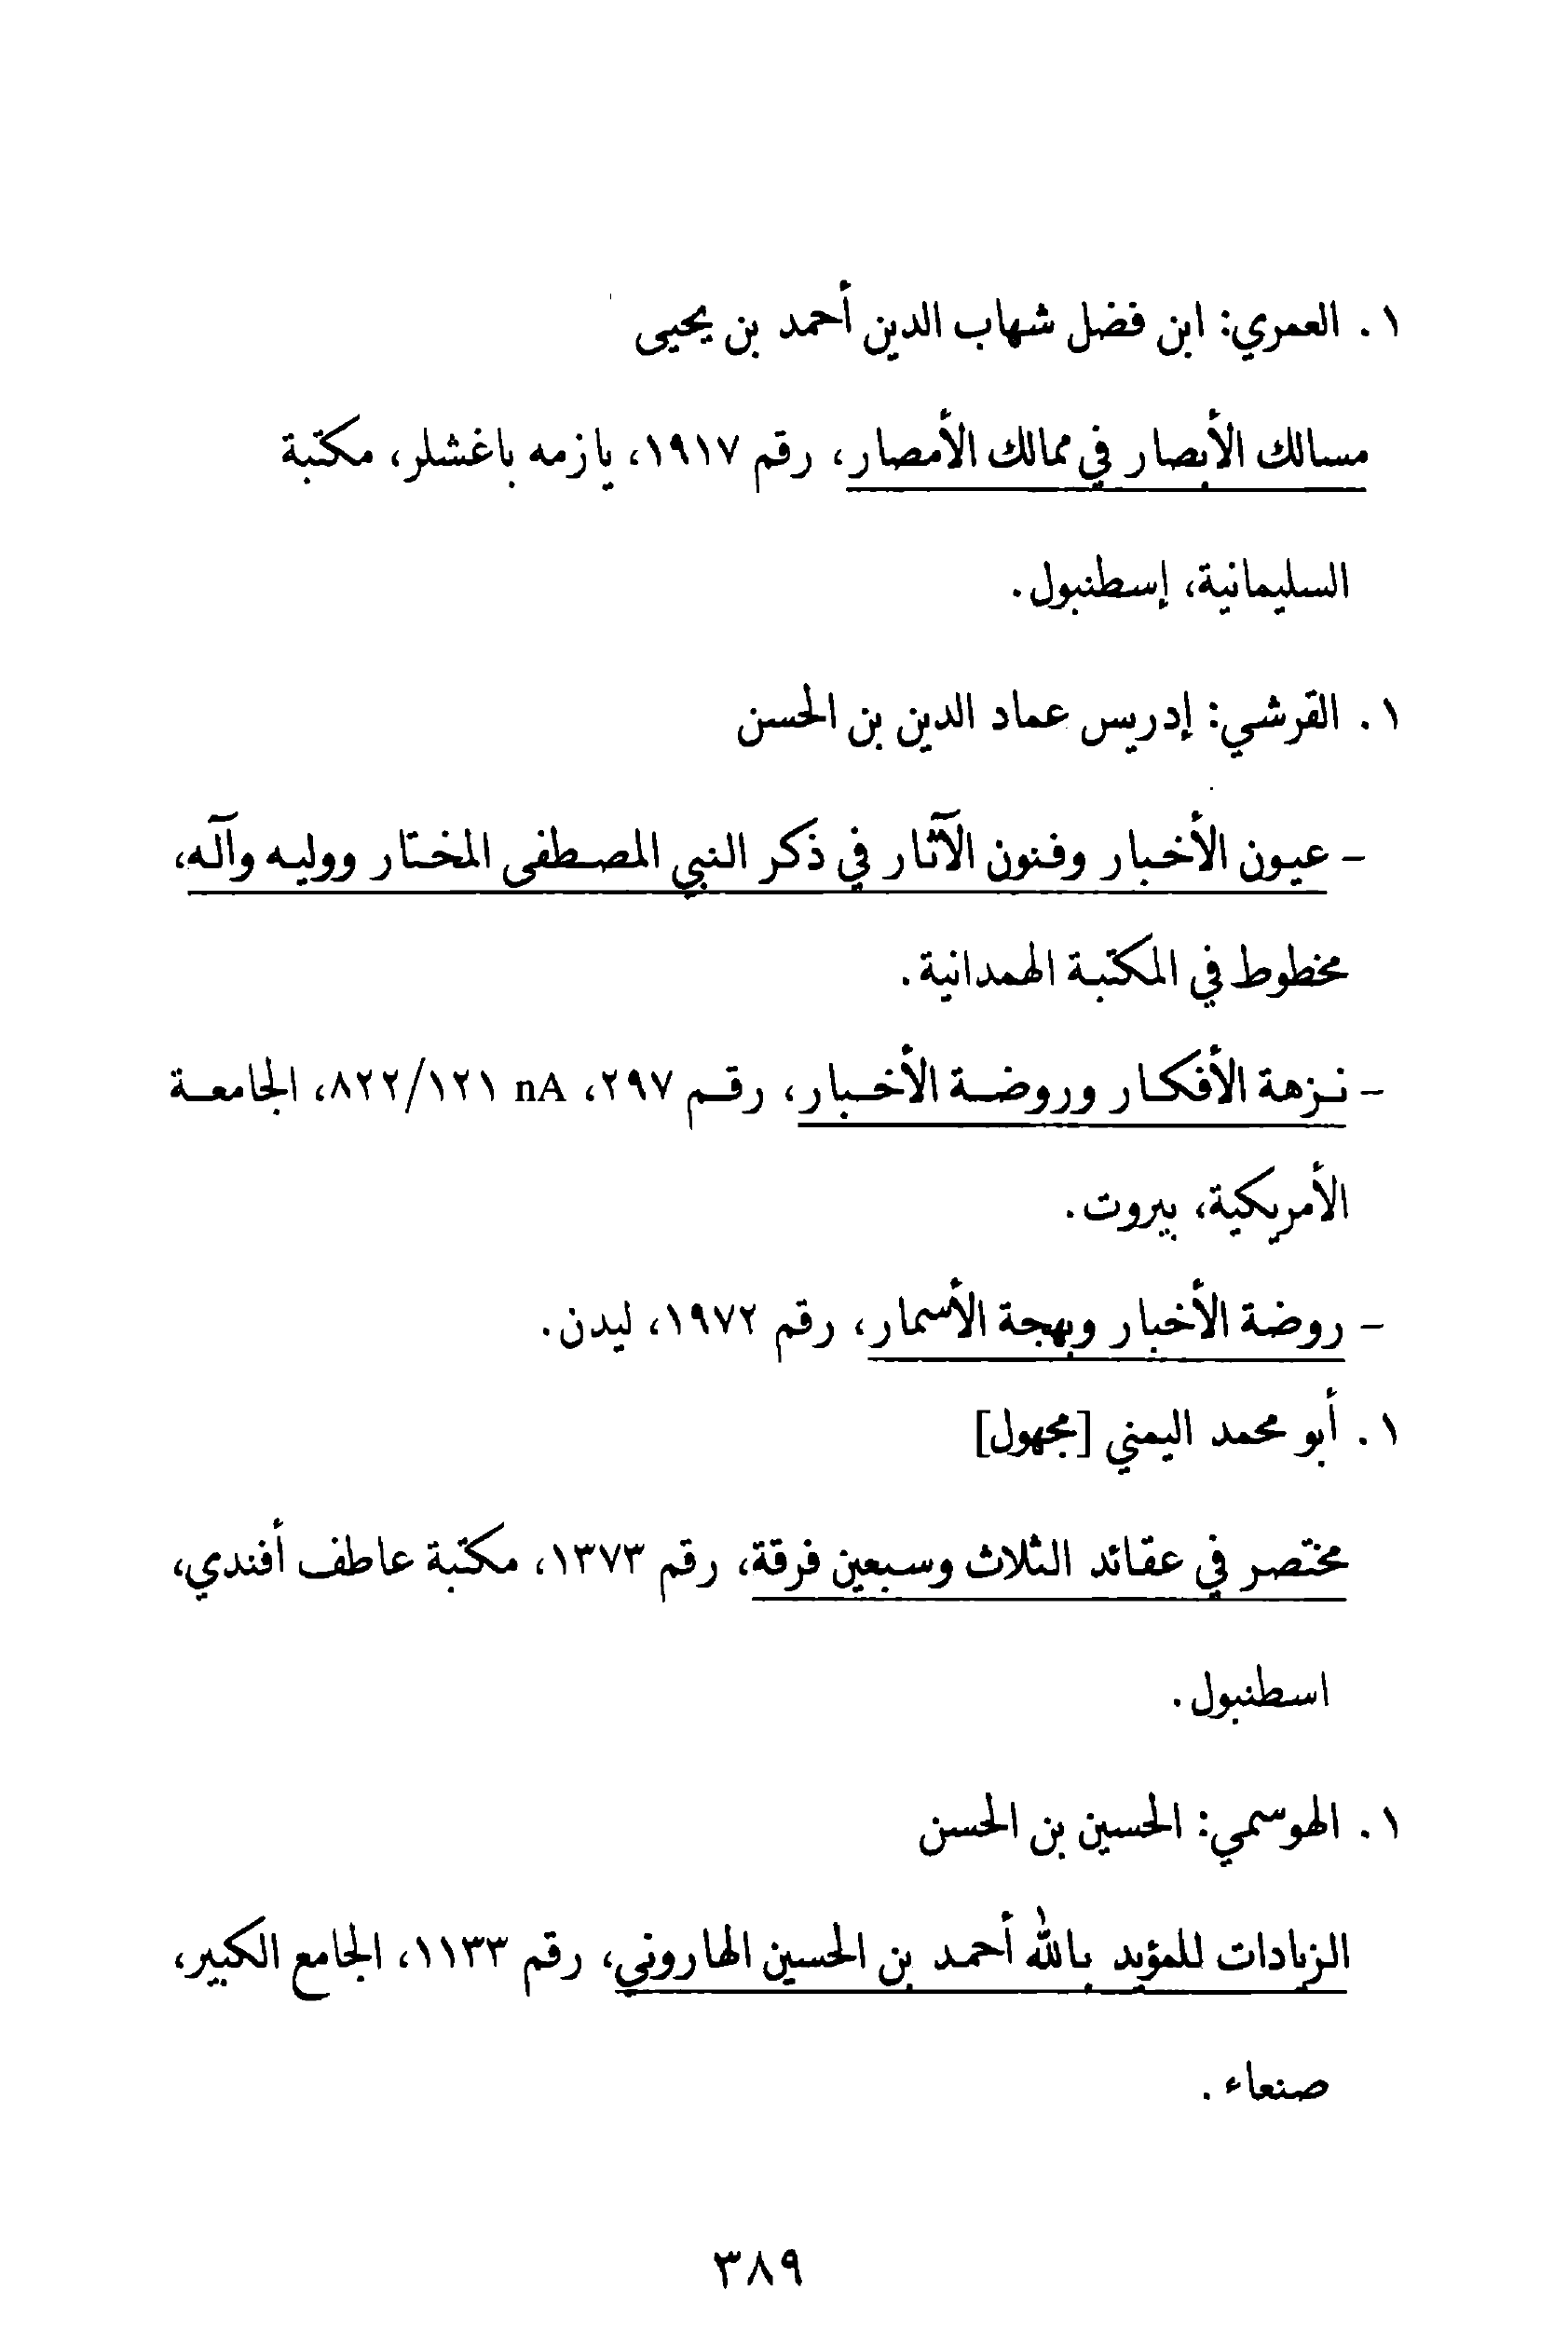 ١. العمري: ابن فضل شهاب الدين أحمد بن يحيى
مسالك الأبصار في ممالك الأمصار، رقم ١٩١٧، يازمه باغشلر، مكتبة
السليمانية، إسطنبول.
١. القرشي: إدريس عماد الدين بن الحسن
- عيون الأخبار وفنون الآثار في ذكر النبي المصطفى المختار ووليه وآله،
مخطوط في المكتبة الهمدانية.
- نزهة الأفكار وروضة الأخبار، رقم ٢٩٧، nA ٨٢٢/١٢١، الجامعة
الأمريكية، بيروت.
- روضة الأخبار وبهجة الأسمار، رقم ١٩٧٢، ليدن.
١. أبو محمد اليمني [مجهول]
مختصر في عقائد الثلاث وسبعين فرقة، رقم ١٣٧٣، مكتبة عاطف أفندي،
اسطنبول.
١. الهوسمي: الحسين بن الحسن
الزيادات للمؤيد بالله أحمد بن الحسين الهاروني، رقم ١١٣٣، الجامع الكبير،
صنعاء.
٣٨٩